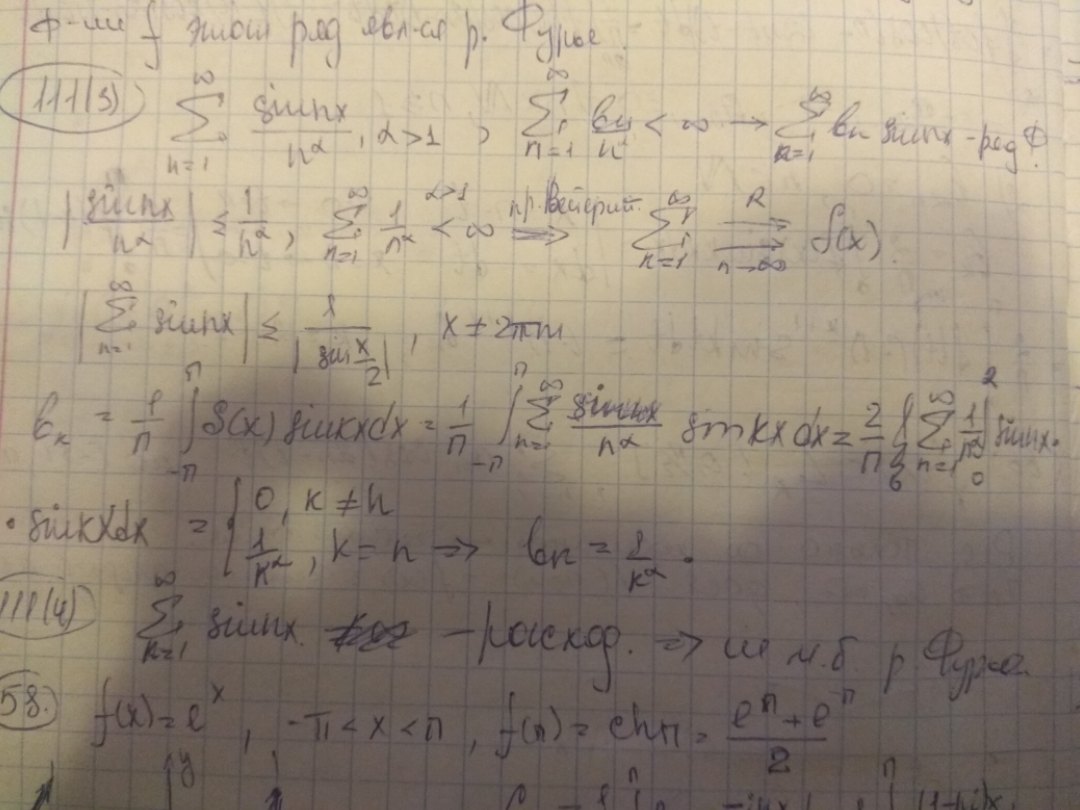 ф-ии f этот ряд явл-ся р. Фурье.
111(3) \sum_{n=1}^{\infty} \frac{\sin nx}{n^α}, α>1, \sum_{n=1}^{\infty} \frac{b_n}{n} < ∞ → \sum_{n=1}^{∞} b_n \sin nx - ряд Ф.
|\frac{\sin nx}{n^α}| ≤ \frac{1}{n^α}, \sum_{n=1}^{∞} \frac{1}{n^α} \overset{α>1}{<} ∞ \overset{пр. Вейерш.}{⟹} \sum_{n=1}^{∞} \underset{n→∞}{\overset{R}{⇉}} f(x).
|\sum_{n=1}^{∞} \sin nx| ≤ \frac{1}{|\sin\frac{x}{2}|}, x ≠ 2πm
b_k = \frac{1}{π} \int_{-π}^{π} f(x) \sin kx dx = \frac{1}{π} \int_{-π}^{π} \sum_{n=1}^{∞} \frac{\sin nx}{n^α} \sin kx dx = \frac{2}{π} \sum_{n=1}^{∞} \frac{1}{n^α} \sin nx ·
· \sin kx dx = { 0, k ≠ n
\frac{1}{k^α}, k = n ⟹ b_n = \frac{1}{k^α}.
111(4) \sum_{n=1}^{∞} \sin nx - расход. ⟹ м.б. р. Фурье.
58. f(x) = e^x, -π < x < π, f(π) = ch π = \frac{e^π + e^{-π}}{2}
y